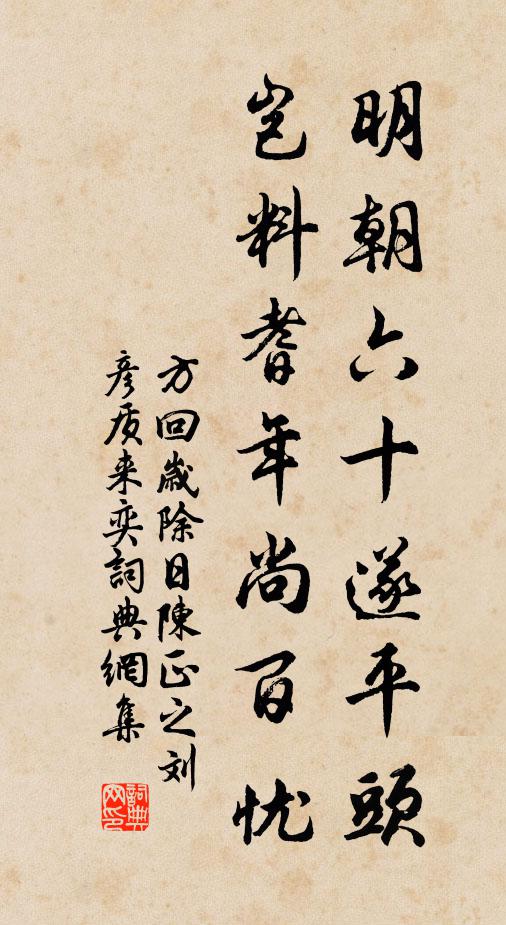 明朝六十遂平頭
岂料耆年尚百忧
方回嵗除日陳正之刘
彦质来奕詞典網集
詞典网印